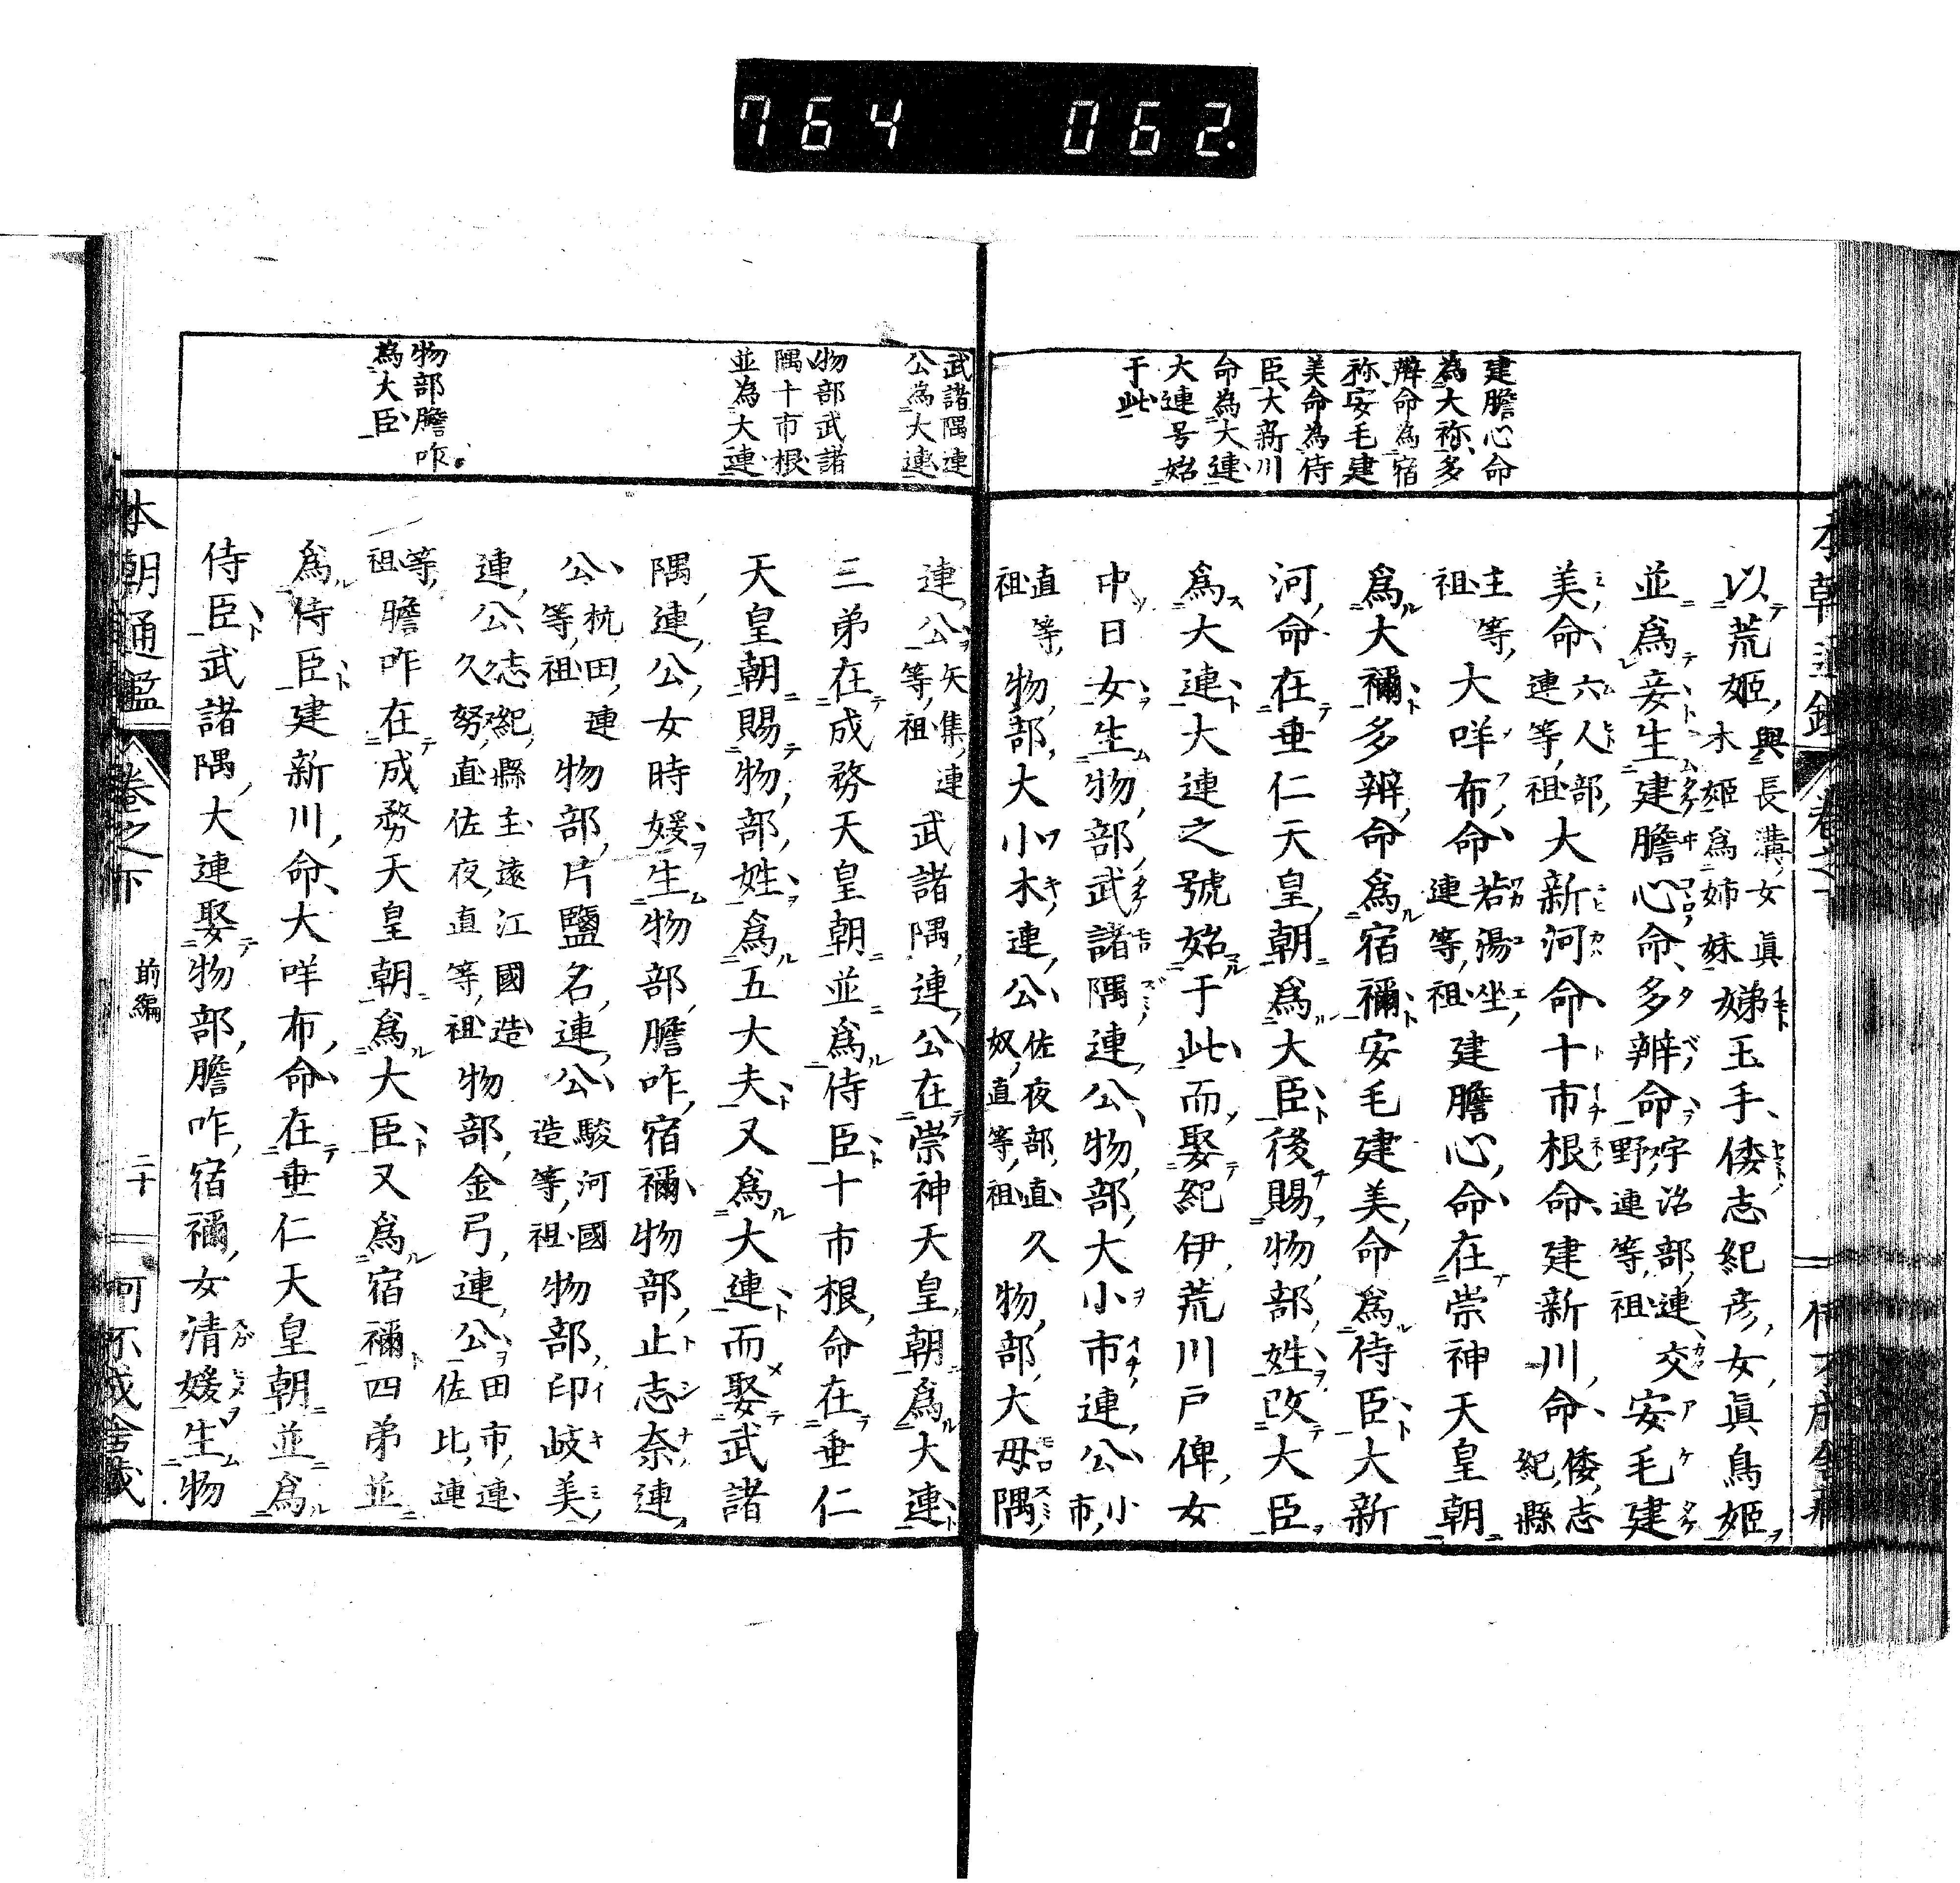 764 062.
建膽心命
為大祢多
辨命為宿
祢安毛建
美命為侍
臣大新川
命為大連
大連号始
于此
以荒姬與長溝女眞木姬爲姉妹娣玉手倭志紀彦女眞鳥姬
並爲妾生建膽心命多辨命宇治部連交野連等祖安毛建
美命六人部連等祖大新河命十市根命建新川命倭志紀縣
主等祖大咩布命若湯坐連等祖建膽心命在崇神天皇朝
爲大禰多辨命爲宿禰安毛建美命爲侍臣大新
河命在垂仁天皇朝爲大臣後賜物部姓改大臣
爲大連大連之號始于此而娶紀伊荒川戸俾女
中日女生物部武諸隅連公物部大小市連公小市
直等祖物部大小木連公佐夜部直久奴直等祖物部大母隅
武諸隅連
公為大連
物部武諸
隅十市根
並為大連
物部膽咋
為大臣
連公矢集連等祖武諸隅連公在崇神天皇朝爲大連
三弟在成務天皇朝並爲侍臣十市根命在垂仁
天皇朝賜物部姓爲五大夫又爲大連而娶武諸
隅連公女時媛生物部膽咋宿禰物部止志奈連
公杭田連等祖物部片鹽名連公駿河國造等祖物部印岐美
連公志紀縣主遠江國造久努直佐夜直等祖物部金弓連公田市連佐比連
等祖膽咋在成務天皇朝爲大臣又爲宿禰四弟並
爲侍臣建新川命大咩布命在垂仁天皇朝並爲
侍臣武諸隅大連娶物部膽咋宿禰女清媛生物
本朝通鑑 卷之下 前編 二十